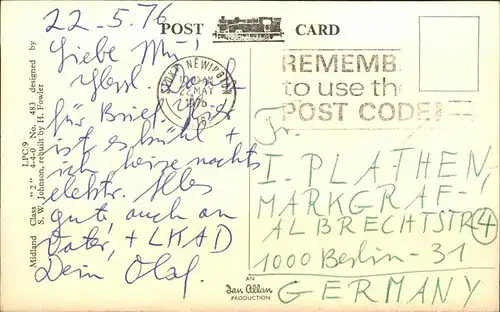 22-5.76
POST CARD
Liebe Mu,
Herzl. Dank
für Brief. Hier
ist es kühl +
ich heize nachts
elektr. Alles
gute, auch an
Vater, + LKAD
Dein Olaf.
LPC/9
Midland Class "2" 4-4-0 No. 483 designed by
S. W. Johnson, rebuilt by H. Fowler
STOKE NEWINGTON
22 MAY
1976
REMEMB
to use the
POST CODE
Fr.
I. PLATHEN,
MARKGRAF-
ALBRECHTSTR 4
1000 Berlin - 31
GERMANY
AN
Ian Allan
PRODUCTION